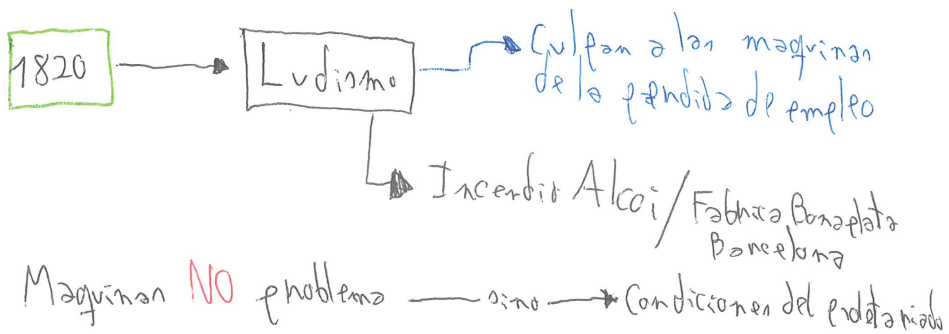 1820
Ludismo
Culpan a las maquinas
de la perdida de empleo
Incendio Alcoi / Fabrica Bonaplata
Barcelona
Maquinas NO problema sino Condiciones del proletariado